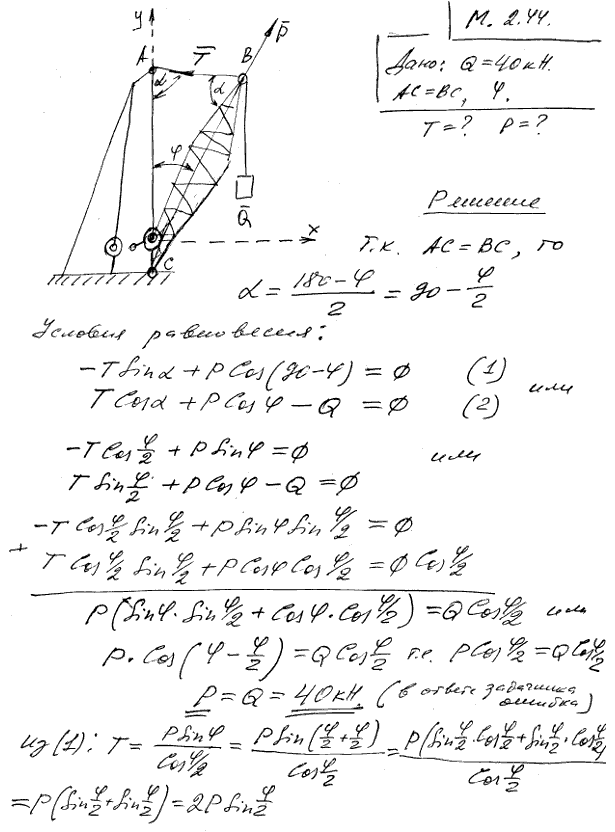 М. 2.44.
Дано: Q=40кН.
AC=BC, φ.
T=? P=?
y
P̄
A
T̄
B
α
α
φ
Q̄
x
C
Решение
Т.к. AC=BC, то
α = (180-φ)/2 = 90 - φ/2
Условия равновесия:
-T Sinα + P Cos(90-φ) = 0 (1)
или
T Cosα + P Cosφ - Q = 0 (2)
-T Cos φ/2 + P Sinφ = 0
или
T Sin φ/2 + P Cosφ - Q = 0
-T Cos φ/2 Sin φ/2 + P Sinφ Sin φ/2 = 0
+
T Cos φ/2 Sin φ/2 + P Cosφ Cos φ/2 = Q Cos φ/2
P(Sinφ·Sin φ/2 + Cosφ·Cos φ/2) = Q Cos φ/2 или
P·Cos(φ - φ/2) = Q Cos φ/2 т.е. P Cos φ/2 = Q Cos φ/2
P = Q = 40кН. (в ответе задачника ошибка)
из (1): T = P Sinφ / Cos φ/2 = P Sin(φ/2 + φ/2) / Cos φ/2 = P(Sin φ/2 · Cos φ/2 + Sin φ/2 · Cos φ/2) / Cos φ/2
= P(Sin φ/2 + Sin φ/2) = 2P Sin φ/2